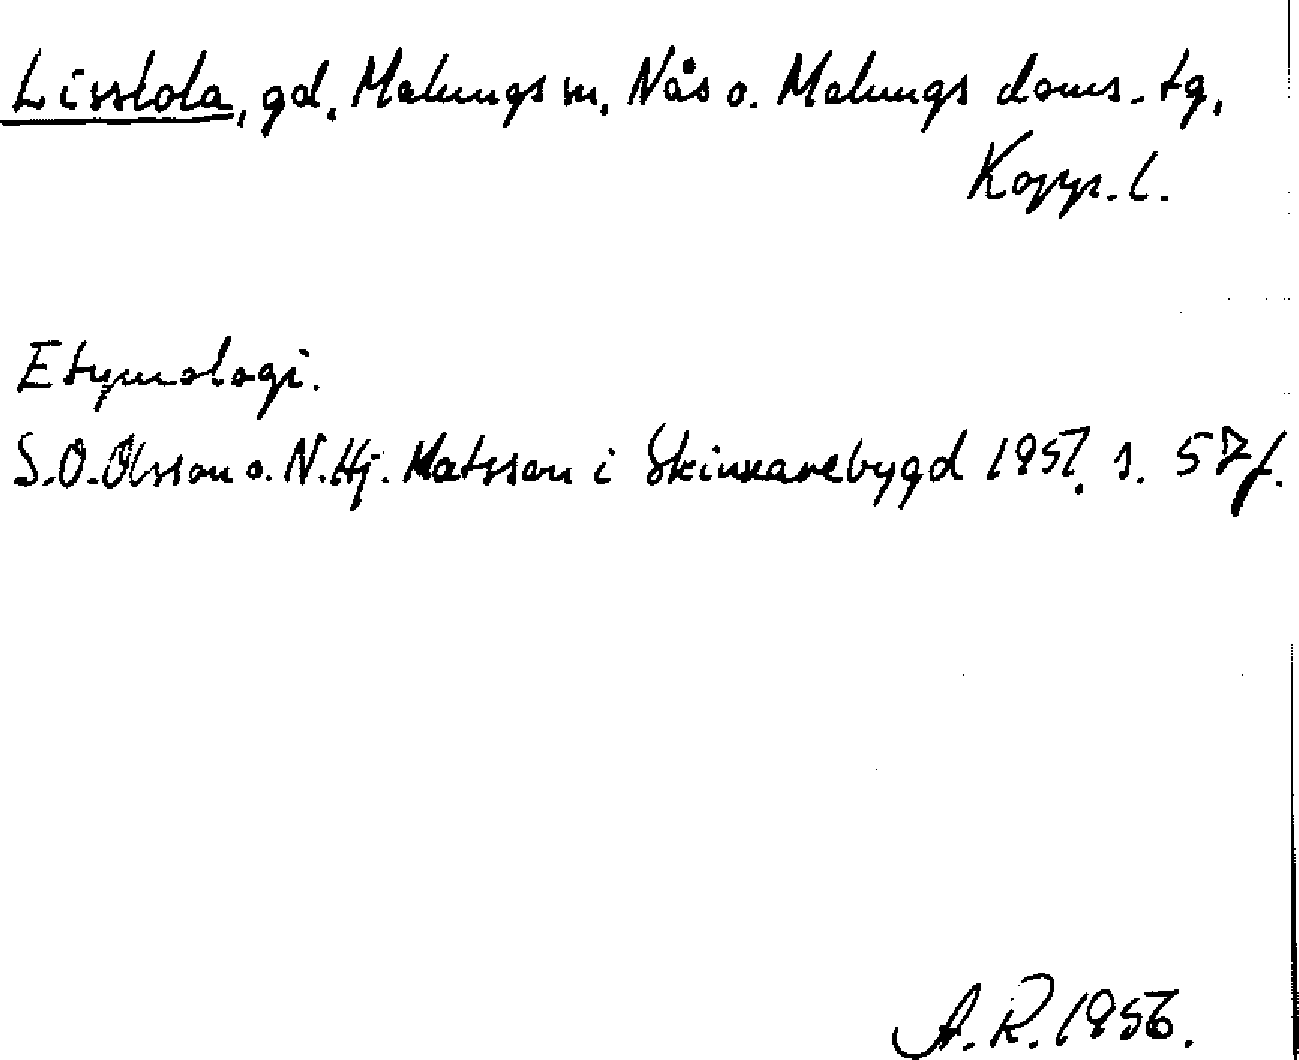 Lisstola, gd, Malungs sn, Nås o. Malungs doms. tg,
Kopp. l.
Etymologi.
S.O. Olsson o. N. Hj. Matsson i Skinnarebygd 1951, s. 57 f.
A. R. 1956.